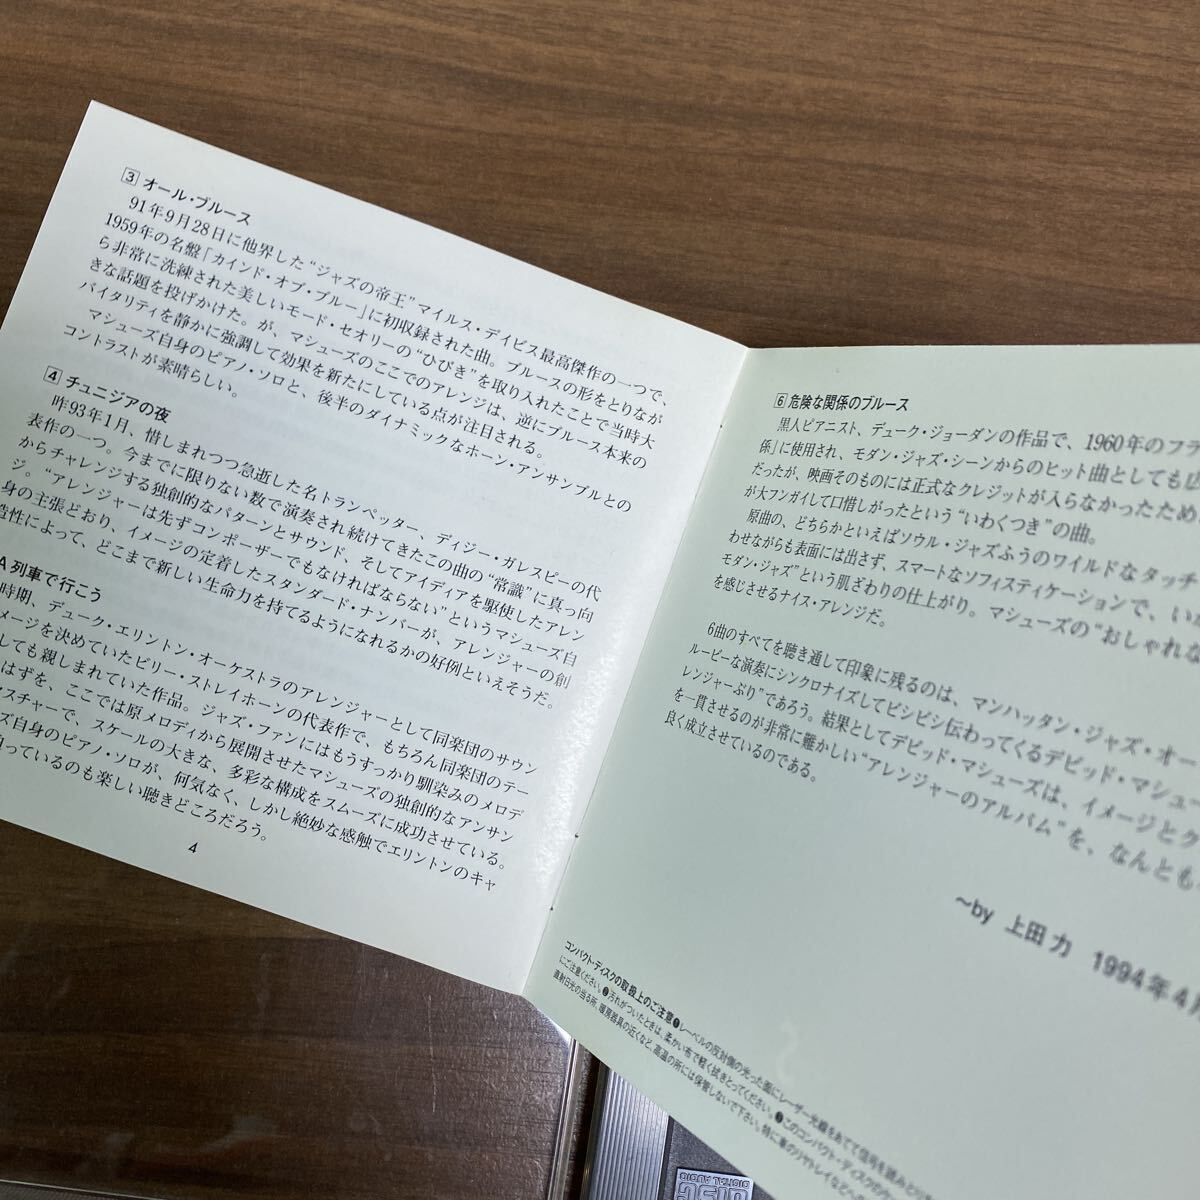 3 オール・ブルース
91年9月28日に他界した“ジャズの帝王”マイルス・デイビス最高傑作の一つで、
1959年の名盤「カインド・オブ・ブルー」に初収録された曲。ブルースの形をとりなが
ら非常に洗練された美しいモード・セオリーの“ひびき”を取り入れたことで当時大
きな話題を投げかけた。が、マシューズのここでのアレンジは、逆にブルース本来の
バイタリティを静かに強調して効果を新たにしている点が注目される。
マシューズ自身のピアノ・ソロと、後半のダイナミックなホーン・アンサンブルとの
コントラストが素晴らしい。
4 チュニジアの夜
昨93年1月、惜しまれつつ急逝した名トランペッター、ディジー・ガレスピーの代
表作の一つ。今までに限りない数で演奏され続けてきたこの曲の“常識”に真っ向
からチャレンジする独創的なパターンとサウンド、そしてアイディアを駆使したアレン
ジ。“アレンジャーは先ずコンポーザーでもなければならない”というマシューズ自
身の主張どおり、イメージの定着したスタンダード・ナンバーが、アレンジャーの創
造性によって、どこまで新しい生命力を持てるようになれるかの好例といえそうだ。
A列車で行こう
時期、デューク・エリントン・オーケストラのアレンジャーとして同楽団のサウン
メージを決めていたビリー・ストレイホーンの代表作で、もちろん同楽団のテー
しても親しまれていた作品。ジャズ・ファンにはもうすっかり馴染みのメロデ
はずを、ここでは原メロディから展開させたマシューズの独創的なアンサン
スチャーで、スケールの大きな、多彩な構成をスムーズに成功させている。
ズ自身のピアノ・ソロが、何気なく、しかし絶妙な感触でエリントンのキャ
っているのも楽しい聴きどころだろう。
4
6 危険な関係のブルース
黒人ピアニスト、デューク・ジョーダンの作品で、1960年のフラ
係」に使用され、モダン・ジャズ・シーンからのヒット曲としても広
だったが、映画そのものには正式なクレジットが入らなかったため
が大フンガイして口惜しがったという“いわくつき”の曲。
原曲の、どちらかといえばソウル・ジャズふうのワイルドなタッチ
わせながらも表面には出さず、スマートなソフィスティケーションで、いか
モダン・ジャズ”という肌ざわりの仕上がり。マシューズの“おしゃれな
を感じさせるナイス・アレンジだ。
6曲のすべてを聴き通して印象に残るのは、マンハッタン・ジャズ・オー
ルーピーな演奏にシンクロナイズしてビシビシ伝わってくるデビッド・マシュー
レンジャーぶり”であろう。結果としてデビッド・マシューズは、イメージとク
を一貫させるのが非常に難かしい“アレンジャーのアルバム”を、なんとも
良く成立させているのである。
～by 上田 力 1994年4月
コンパクト・ディスクの取扱上のご注意 ❶レーベルの反対側の光った面にレーザー光線をあてて信号を読みとり
にご注意ください。❷汚れがついたときは、柔かい布で軽く拭きとってください。❸このコンパクト・ディスクのケー
直射日光の当る所、暖房器具の近くなど、高温の所には保管しないで下さい。特に車のリヤトレイなどへの
DISC
DIGITAL AUDIO